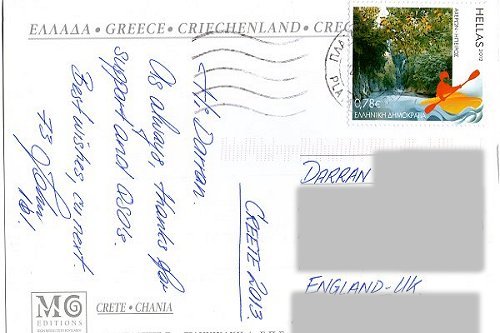 ΕΛΛΑΔΑ • GREECE • GRIECHENLAND • CRE
HELLAS 2012
0,78€
ΕΛΛΗΝΙΚΗ ΔΗΜΟΚΡΑΤΙΑ
PLA
Hi Darran.
As always, thanks for
support and QSO's.
Best wishes, cu next
73 John
CRETE 2013.
DARRAN
ENGLAND-UK.
MG
EDITIONS
CRETE • CHANIA